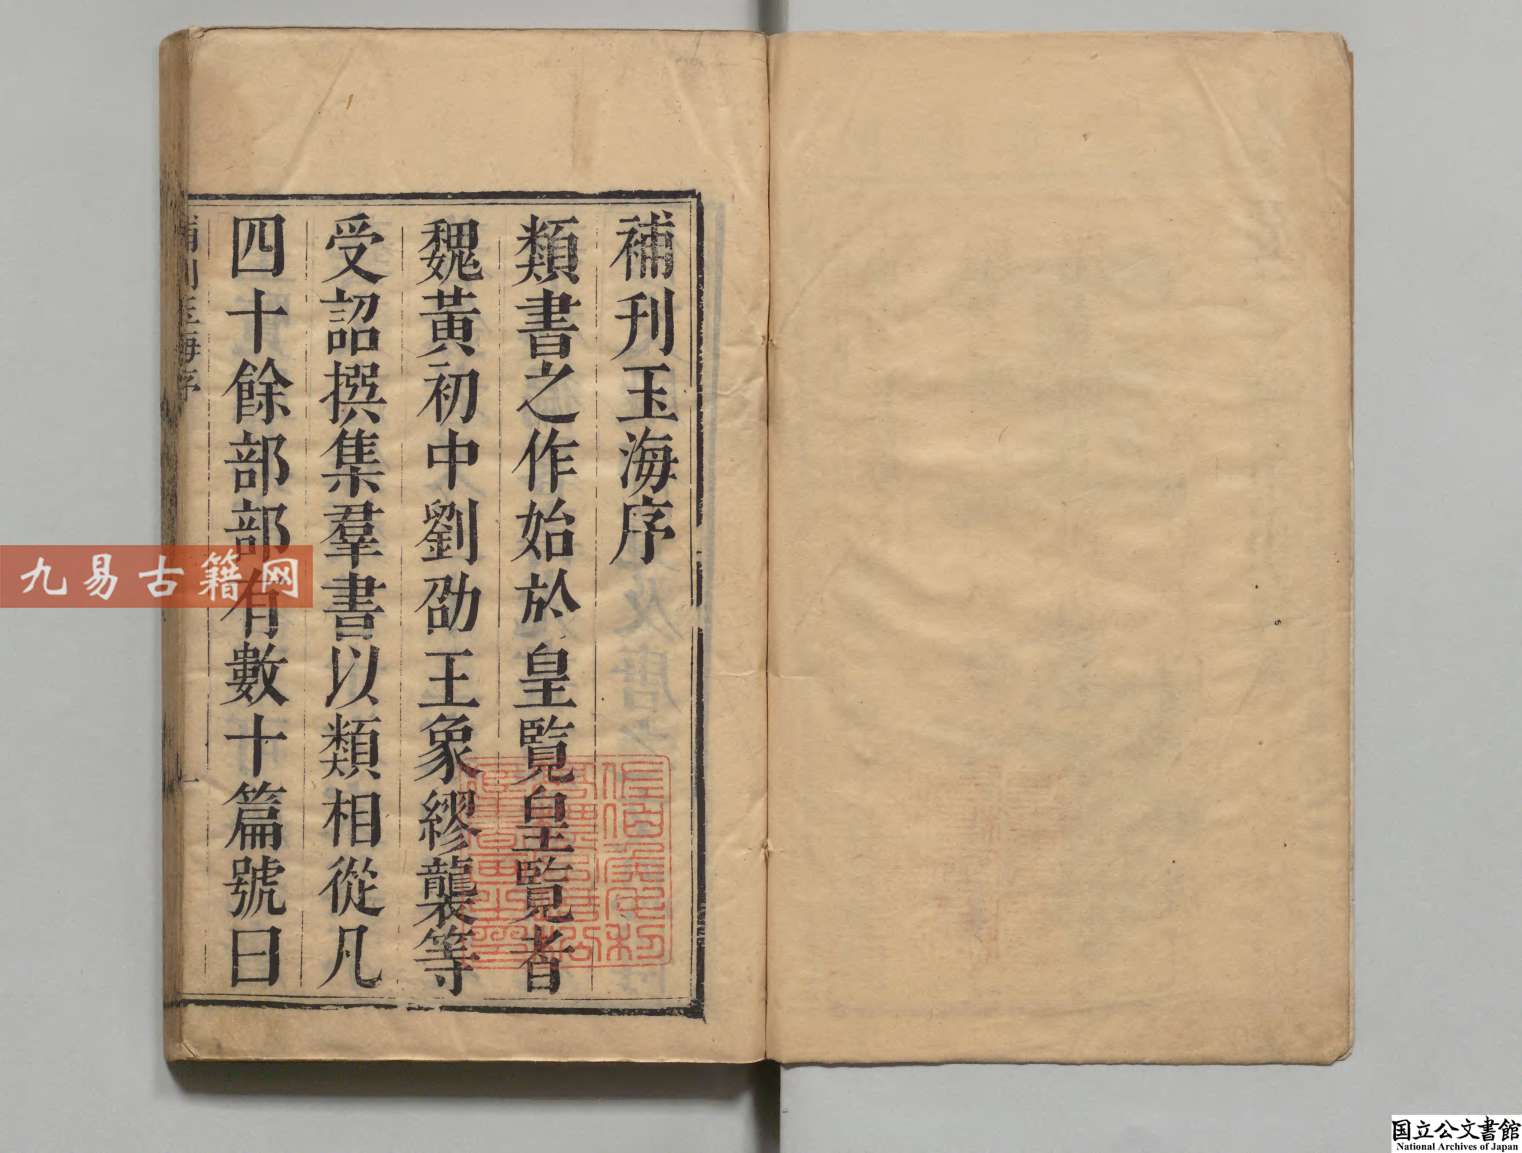 補刊玉海序
類書之作始於皇覽皇覽者
魏黃初中劉劭王象繆襲等
受詔撰集羣書以類相從凡
四十餘部部有數十篇號曰
補刊玉海序
一
佐伯侯毛利
高標字培松
藏書畫之印
九易古籍网
国立公文書館
National Archives of Japan